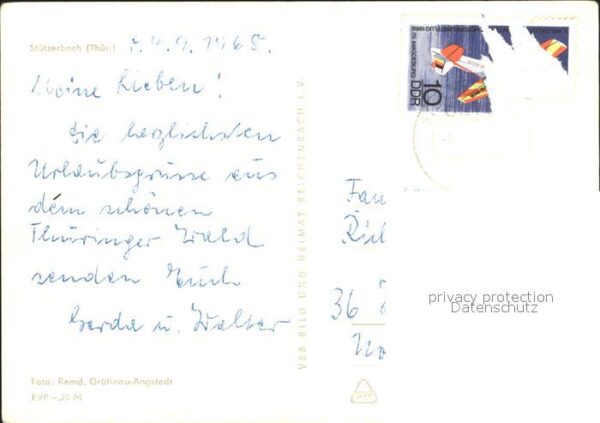 Stützerbach (Thür.)
4.9.1968.
Meine Lieben!
Die herzlichsten
Urlaubsgrüsse aus
dem schönen
Thüringer Wald
senden Euch
Gerda u. Walter
Foto: Remd, Gräfinau-Angstedt
EVP -,25 M
VEB BILD UND HEIMAT REICHENBACH I. V.
IN MAGDEBURG
10
DDR
Fam
36
privacy protection
Datenschutz